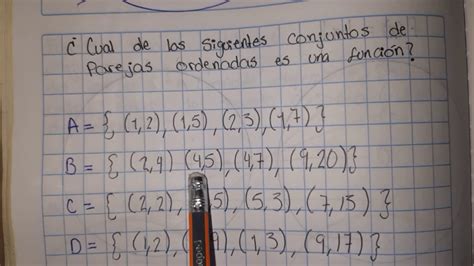 ¿ Cual de los siguientes conjuntos de
Parejas ordenadas es una función?
A = {, (1,2), (1,5), (2,3), (4,7)}
B = { (2,4) (4,5), (4,7), (9,20)}
C = { (2,2), 5), (5,3), (7,15) }
D = { (1,2), 9), (1,3), (9,17)}